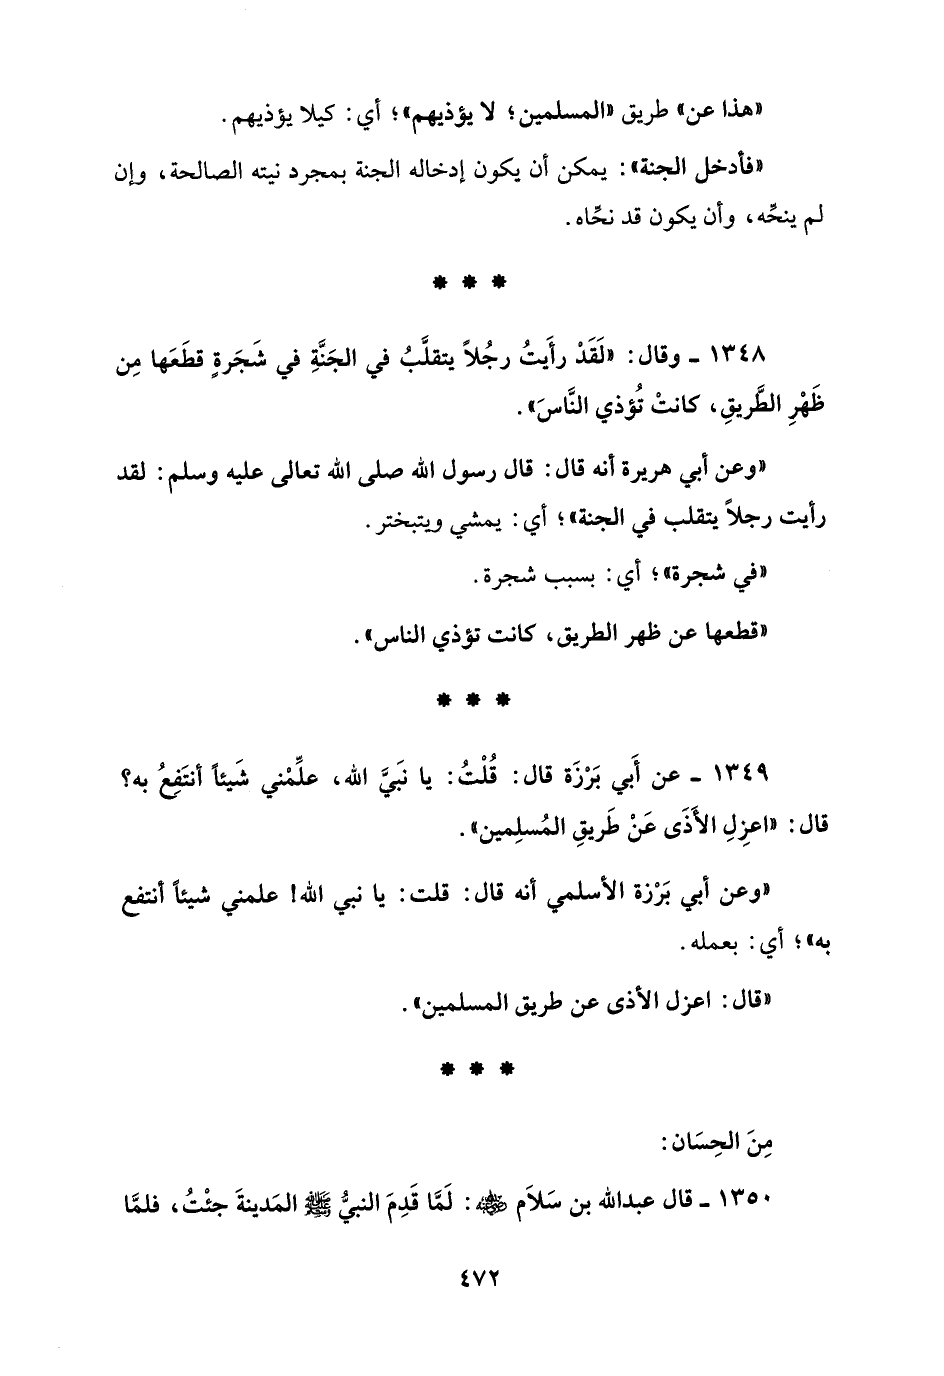 «هذا عن» طريق «المسلمين؛ لا يؤذيهم»؛ أي: كيلا يؤذيهم.
«فأدخل الجنة»: يمكن أن يكون إدخاله الجنة بمجرد نيته الصالحة، وإن
لم ينحِّه، وأن يكون قد نحَّاه.
* * *
١٣٤٨ ـ وقال: «لَقَدْ رأَيتُ رجُلاً يتقلَّبُ في الجَنَّةِ في شَجَرةٍ قطَعَها مِن
ظَهْرِ الطَّريقِ، كانتْ تُؤذي النَّاسَ».
«وعن أبي هريرة أنه قال: قال رسول الله صلى الله تعالى عليه وسلم: لقد
رأيت رجلاً يتقلب في الجنة»؛ أي: يمشي ويتبختر.
«في شجرة»؛ أي: بسبب شجرة.
«قطعها عن ظهر الطريق، كانت تؤذي الناس».
* * *
١٣٤٩ ـ عن أَبي بَرْزَة قال: قُلْتُ: يا نَبيَّ الله، علِّمْني شَيئاً أنتَفِعُ به؟
قال: «اعزِلِ الأَذَى عَنْ طَريقِ المُسلِمين».
«وعن أبي بَرْزة الأسلمي أنه قال: قلت: يا نبي الله! علمني شيئاً أنتفع
به»؛ أي: بعمله.
«قال: اعزل الأذى عن طريق المسلمين».
* * *
مِنَ الحِسَان:
١٣٥٠ ـ قال عبدالله بن سَلاَم ﷁ: لَمَّا قَدِمَ النبيُّ ﷺ المَدينةَ جئْتُ، فلمَّا
٤٧٢